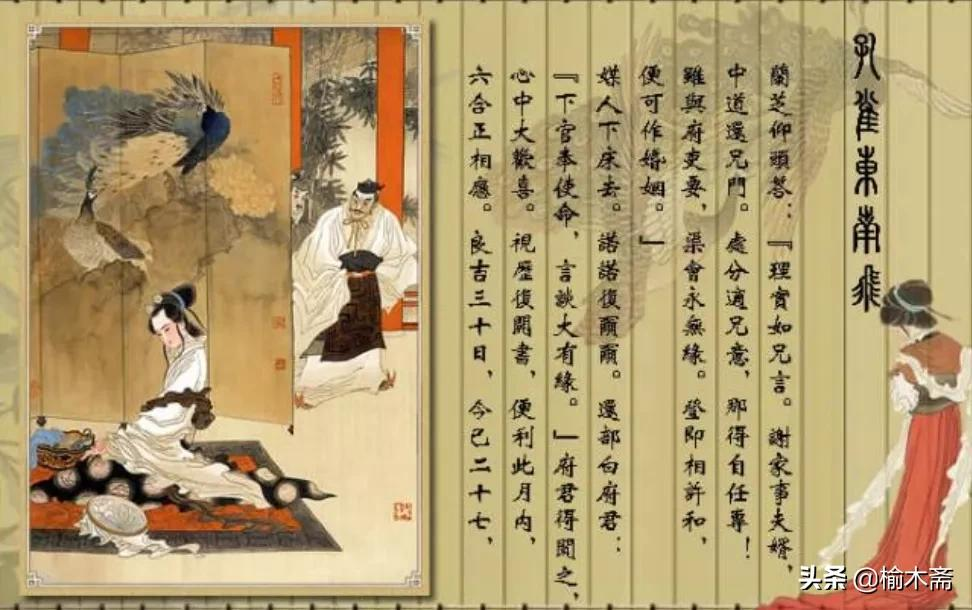 孔雀東南飛
蘭芝仰頭答：『理實如兄言。謝家事夫婿，
中道還兄門。處分適兄意，那得自任專！
雖與府吏要，渠會永無緣。登即相許和，
便可作婚姻。』
媒人下床去。諾諾復爾爾。還部白府君：
『下官奉使命，言談大有緣。』府君得聞之，
心中大歡喜。視歷復開書，便利此月內，
六合正相應。良吉三十日，今已二十七，
头条 @榆木斋